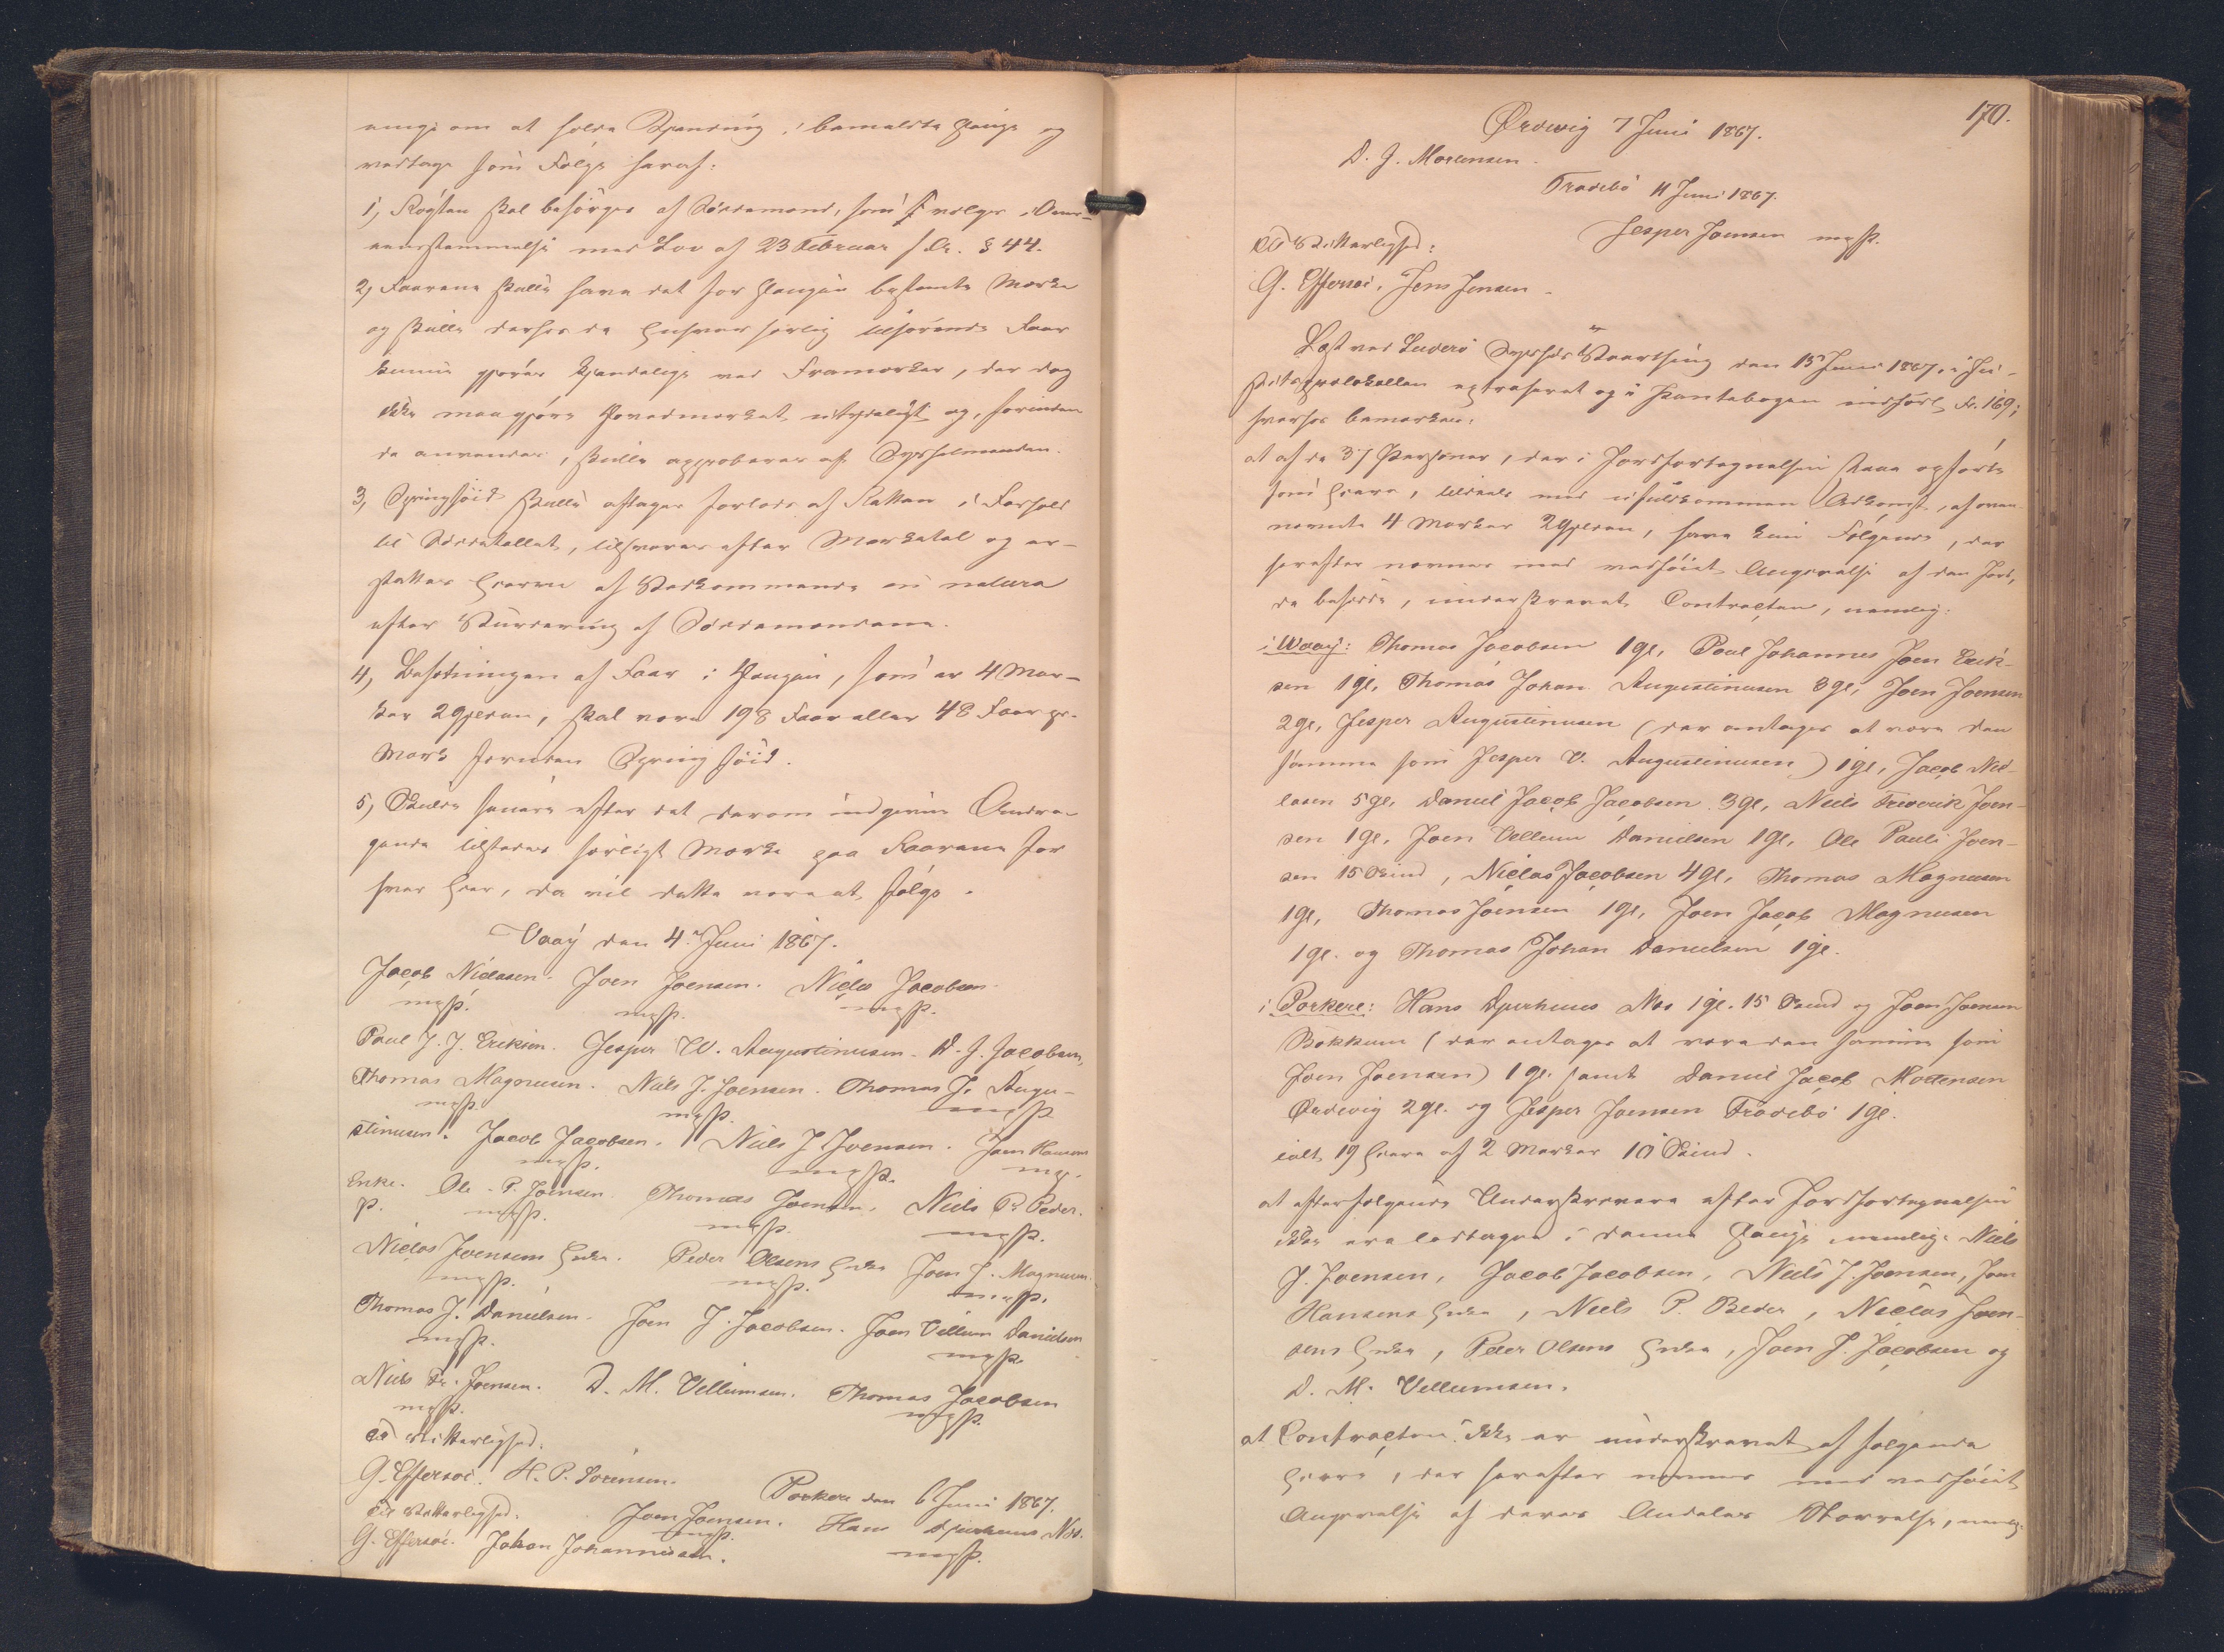 enige om at holde Spending i bemeldte Hauge og
vedtage som Følge heraf:
1, Røgten skal besørges af Søddemænd, som vælges i Over-
eensstemmelse med Lov af 23 Februar f. Ar. § 44.
2, Faarene skulle have det for Haugen bestemte Mærke
og skulle derhos de Enhver særlig tilhørende Faar
kunne gjøres kjendelige ved Framærker, der dog
ikke maa gjøre Hovedmærket utydeligt og, forinden
de anvendes, skulle approberes af Sysselmanden.
3, Springhöid skulle aftages forlods af Flokken i Forhold
til Søddetallet, tilsvares efter Marketal og er-
stattes Eierne af Vedkommende in natura
efter Vurdering af Søddemændene.
4, Besætningen af Faar i Haugen, som er 4 Mar-
ker 2 Gylden, skal være 198 Faar eller 48 Faar pr.
Mark foruden Spring höid.
5, Skulde senere efter det derom indgivne Andra-
gende tilstedes særligt Mærke paa Faarene for
hver Eier, da vil dette være at følge.
Vaay den 4de Juni 1867.
Jacob Niclasen. Joen Joensen. Niclas Jacobsen.
m. p. m. p. m. p.
Poul J. J. Eriksen. Jesper W. Augustinusen. D. J. Jacobsen,
Thomas Magnusen. Niels J. Joensen. Thomas J. Augu-
m. p. m. p. m. p.
stinusen. Jacob Jacobsen. Niels J Joensen. Joen Hansens
m. p. m. p. m.
Enke. Ole P. Joensen. Thomas Joensen. Niels P. Peder.
p. m. p. m. p. m. p.
Niclas Joensens Enke. Peder Olsens Enke Joen J. Magnusen.
m. p. m. p. m. p.
Thomas J. Danielsen. Joen J. Jacobsen. Joen Vellum Danielsen
m. p. m. p.
Niels Fr. Joensen. D. M. Vellumsen. Thomas Jacobsen
m. p. m. p.
Til Vitterlighed:
G. Effersøe. H. P. Sørensen.
Porkere den 6 Juni 1867.
Til Vitterlighed. Joen Joensen. Hans Djurhuus Næs.
G. Effersøe. Johan Johannesen. m. p. m. p.
170.
Ørdevig 7 Juni 1867.
D. J. Mortensen.
Frodebö 11 Juni 1867.
Jesper Joensen m. p.
Til Vitterlighed:
G. Effersøe. Jens Jensen.
Læst ved Suderö Syssels Vaarthing den 15 Juni 1867, i Ju-
stitsprotokollen extraheret og i Pantebogen indført Fr. 169;
hvorhos bemærkes:
at af de 37 Personer, der i Jordfortegnelsen staae opførte
som Eiere, tildeels med ufuldkommen Adkomst, af oven-
nævnte 4 Marker 2 Gylden, have kun Følgende, der
herefter nævnes med vedføiet Angivelse af den Jord,
de besidde, underskrevet Contracten, nemlig:
i Waay: Thomas Jacobsen 1 gl, Poul Johannes Joen Erik-
sen 1 gl, Thomas Johan Augustinusen 3 gl, Joen Joensen
2 gl, Jesper Augustinusen (der antages at være den
samme som Jesper V. Augustinusen) 1 gl, Jacob Nic-
lasen 5 gl, Daniel Jacob Jacobsen 3 gl, Niels Frederik Joen-
sen 1 gl, Joen Vellum Danielsen 1 gl, Ole Pauli Joen-
sen 15 Skind, Niclas Jacobsen 4 gl, Thomas Magnusen
1 gl, Thomas Joensen 1 gl, Joen Jacob Magnusen
1 gl. og Thomas Johan Danielsen 1 gl.
i Porkere: Hans Djurhuus Næs 1 gl. 15 Skind og Joen Joensen
Bökkum (der antages at være den samme som
Joen Joensen) 1 gl. samt Daniel Jacob Mortensen
Ørdevig 2 gl. og Jesper Joensen Frodebö 1 gl.
ialt 19 Eiere af 2 Marker 10 Skind.
at efterfølgende Underskrivere efter Jordfortegnelsen
ikke ere lodtagne i denne Hauge nemlig: Niels
J. Joensen, Jacob Jacobsen, Niels J. Joensen, Joen
Hansens Enke, Niels P. Peder, Niclas Joen-
sens Enke, Peder Olsens Enke, Joen J. Jacobsen og
D. M. Vellumsen.
at Contracten ikke er underskrevet af følgende
Eiere, der herefter nævnes med vedføiet
Angivelse af deres Andeles Størrelse, nemlig: